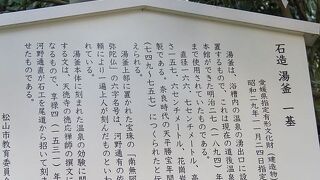 石造 湯釜 一基
愛媛県指定有形文化財(建造物)
昭和二九年一一月二四日指定
湯釜は、浴槽内の温泉の湧出口に設
置するもので、これは現在の道後温泉
本館ができた明治二七(一八九四)年
まで使用されたものである。
直径一六六、七センチメートル、高
さ一五七、六センチメートル、花崗岩
製である。奈良時代の天平勝宝年間
(七四九〜七五七)につくられたと
湯釜上部に置かれた宝珠の「南無阿
弥陀仏」の六字名号は、河野通有の依
頼により一遍上人が刻んだものとい
われている。
湯釜本体に刻まれた温泉の効験に関
する文は、天徳寺の徳応禅師の撰文
なるもので、享禄四(一五三一)年
河野通直が石工を尾道から招いて刻ま
松山市教育委員会